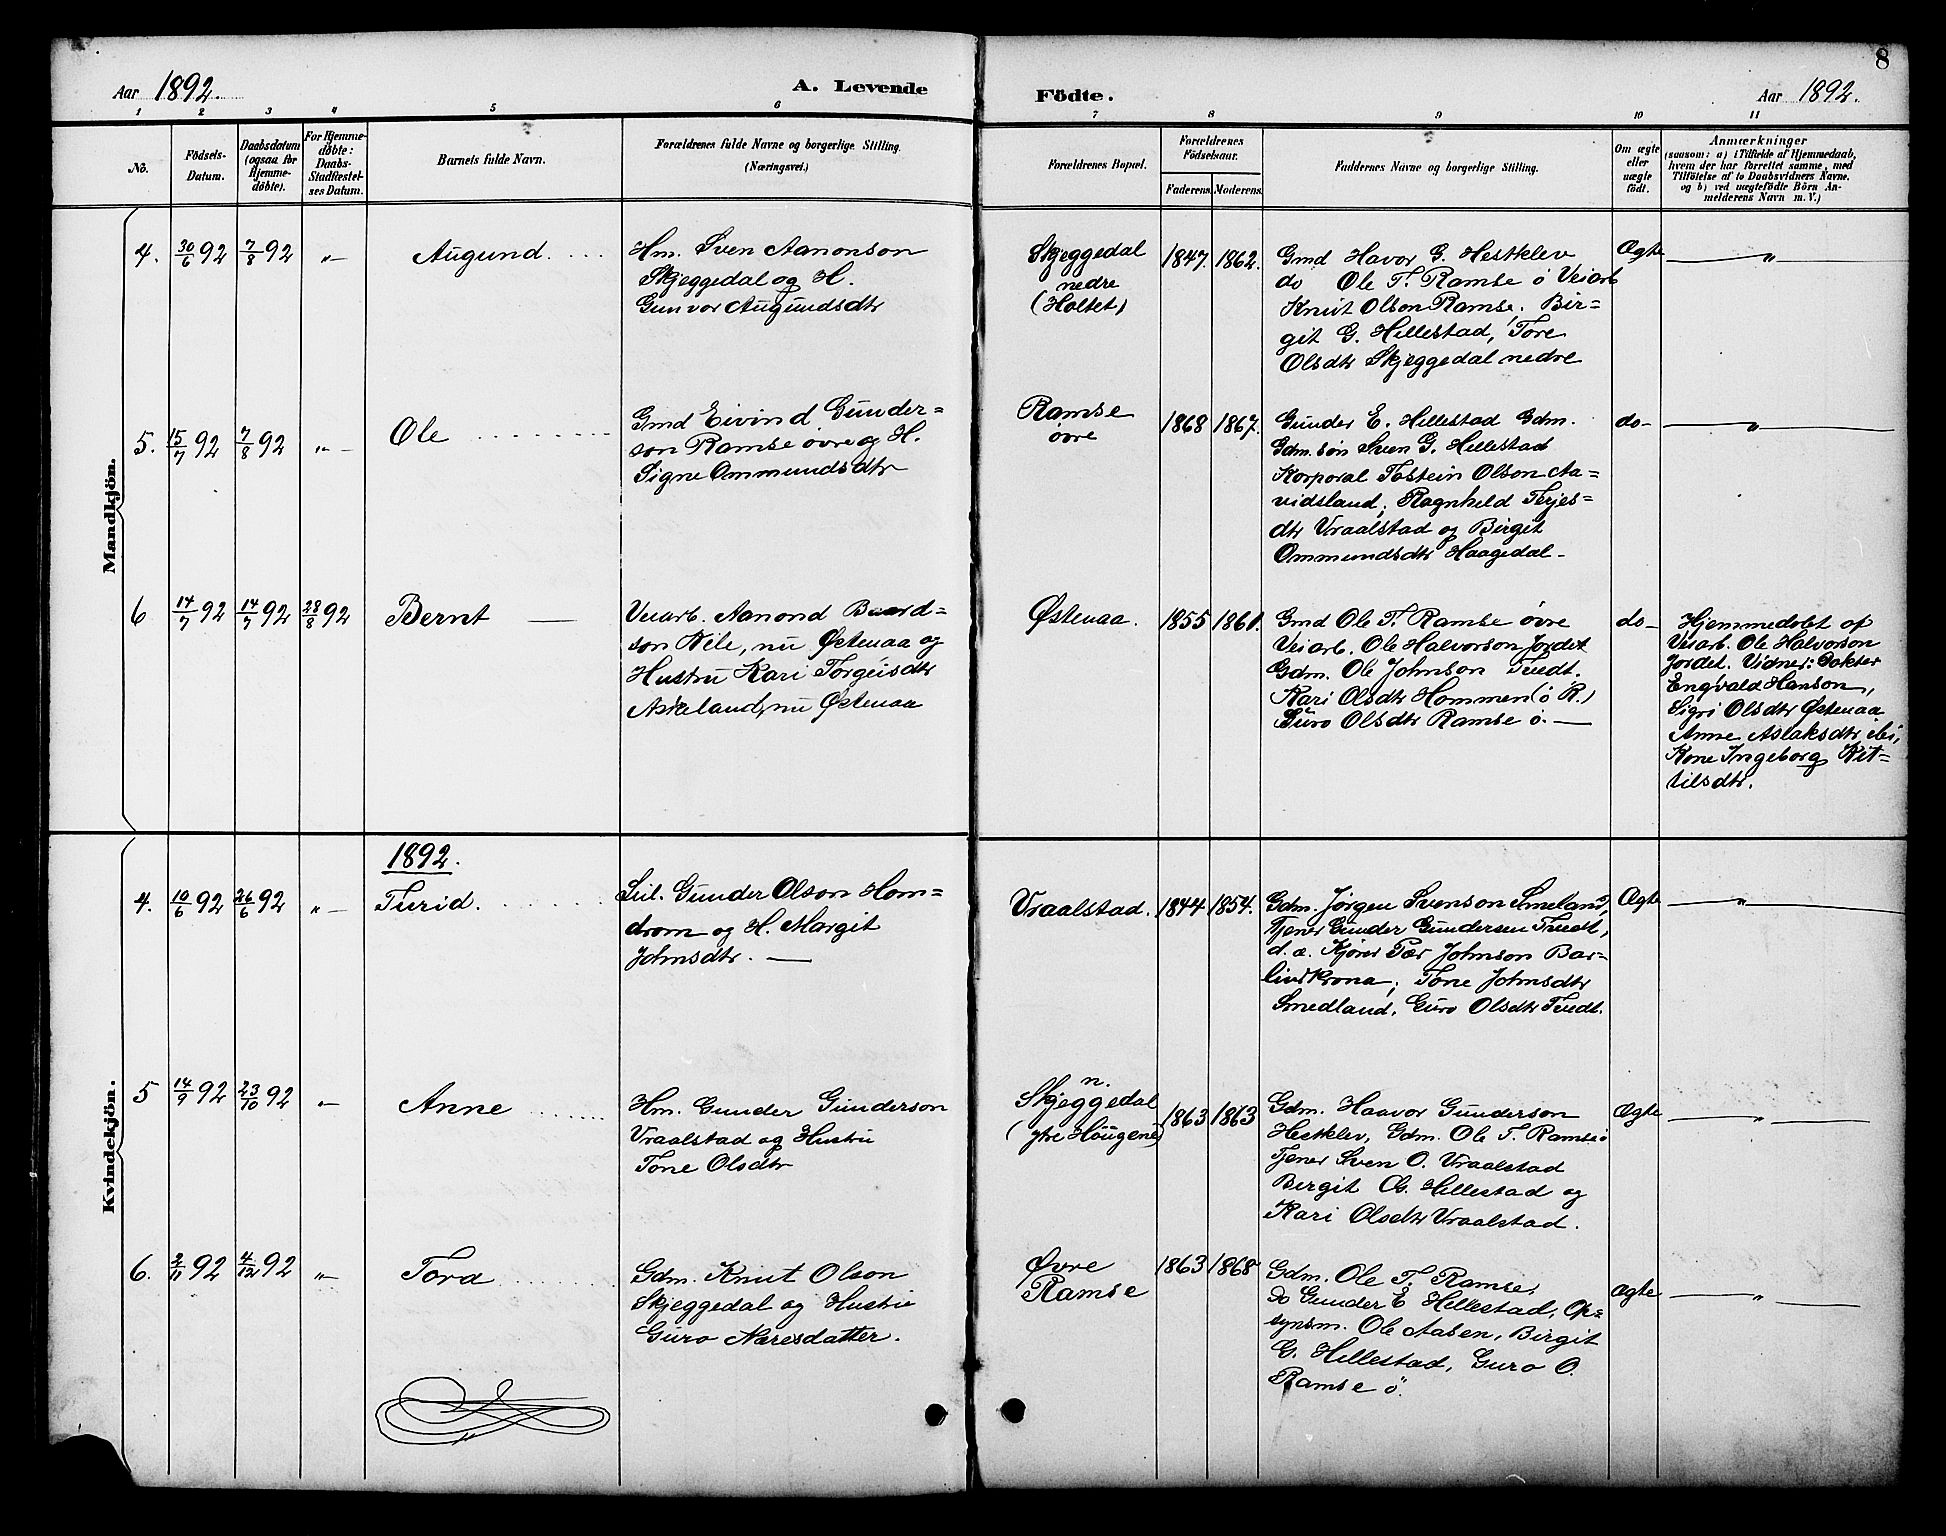 8
Aar 1892. A. Levende Födte. Aar 1892.
1 2 3 4 5 6 7 8 9 10 11
No.
Födsels-
Datum.
Daabsdatum
(ogsaa for
Hjemme-
döbte).
For Hjemme-
döbte:
Daabs-
Stadfæstel-
ses Datum.
Barnets fulde Navn.
Forældrenes fulde Navne og borgerlige Stilling.
(Næringsvei.)
Forældrenes Bopæl.
Forældrenes
Födselsaar.
Faderens. Moderens.
Faddernes Navne og borgerlige Stilling.
Om ægte
eller
uægte
födt.
Anmærkninger
(saasom: a) i Tilfælde af Hjemmedaab,
hvem der har forrettet samme, med
Tilföielse af to Daabsvidners Navne.
og b) ved uægtefödte Börn An-
melderens Navn m. V.)
Mandkjön.
4. 30/6 92 7/8 92 „ Augund.
Hm. Sven Aanonson
Skjeggedal og H.
Gunvor Augundsdtr
Skjeggedal
nedre
(Holtet)
1847. 1862.
Gmd Havor G. Hestklev
do Ole T. Ramse ö Veiarb
Knut Olson Ramse. Bir-
git G. Hillestad, Tore
Olsdtr Skjeggedal nedre
Ægte „
5. 15/7 92 7/8 92 „ Ole
Gmd Eivind Gunder-
son Ramse övre og H.
Signe Ommundsdtr
Ramse
övre
1868 1867.
Gunder E. Hillestad Gdm.
Gdm. sön Sven G. Hillestad
Korporal Tostein Olson Aa-
vidsland, Ragnhild Terjes-
dtr Vraalstad og Birgit
Ommundsdtr Haagedal-
do- „
6 14/7 92 14/7 92 28/8 92 Bernt
Veiarb. Aanond Baard-
son Nele, nu Østenaa og
Hustru Kari Torgeisdtr
Askeland, nu Østenaa
Østenaa.
1855 1861.
Gmd Ole T. Ramse övre
Veiarb. Ole Halvorson Jordet
Gdm. Ole Johnson Tvedt.
Kari Olsdtr Hommen (ö R.)
Guro Olsdtr Ramse ö.
do-
Hjemmedöbt af
Veiarb. Ole Halvorson
Jordet. Vidner: Dokter
Engvald Hanson,
Sigri Olsdtr Østenaa
Anne Aslaksdtr ibi,
Kone Ingeborg Kit-
tilsdtr.
Kvindekjön.
1892.
4. 10/6 92 26/6 92 „ Turid.
Gunder Olson Hom-
drom og H. Margit
Johnsdtr.
Vraalstad.
1844 1854.
Gdm. Jörgen Svenson Smeland,
Tjener Gunder Gundersen Tvedt,
d. a. Kjörer Tær Johnson Bar-
lindkrona; Tone Johnsdtr
Smedland, Guro Olsdtr Tvedt.
Ægte „
5 14/9 92 23/10 92 „ Anne
Hm. Gunder Gunderson
Vraalstad og Hustru
Tone Olsdtr
n.
Skjeggedal
(ytre Haugene)
1863 1863
Gdm. Haavor Gunderson
Hestklev, Gdm. Ole T. Ramse ö
Tjener Sven O. Vraalstad
Birgit G. Hillestad og
Kari Olsdtr Vraalstad.
Ægte „
6. 2/11 92 4/12 92 „ Tora
Gdm. Knut Olson
Skjeggedal og Hustru
Guro Næresdatter.
Øvre
Ramse
1863 1868
Gdm. Ole T. Ramse,
do Gunder E Hillestad, Op-
synsm. Ole Aasen, Birgit
G. Hillestad, Guro O.
Ramse ö.
Ægte „